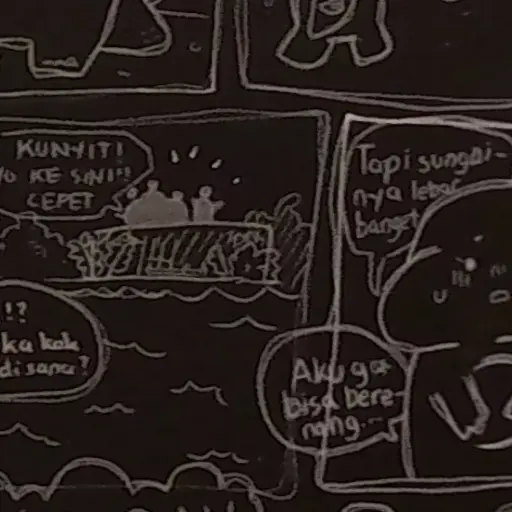 KUNYIT!
KE SINI!!
CEPET
!?
ka kok
di sana?
Tapi sungai-
nya lebar
banget
Aku ga
bisa bere-
nang...